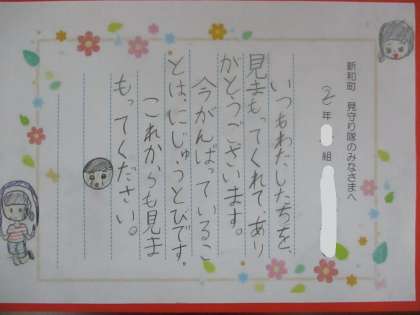 新和町　見守り隊のみなさまへ
2年　組
いつもわたしたちを、
見まもってくれてあり
がとうございます。
今がんばっているこ
とは、にじゅうとびです。
これからも見ま
もってください。